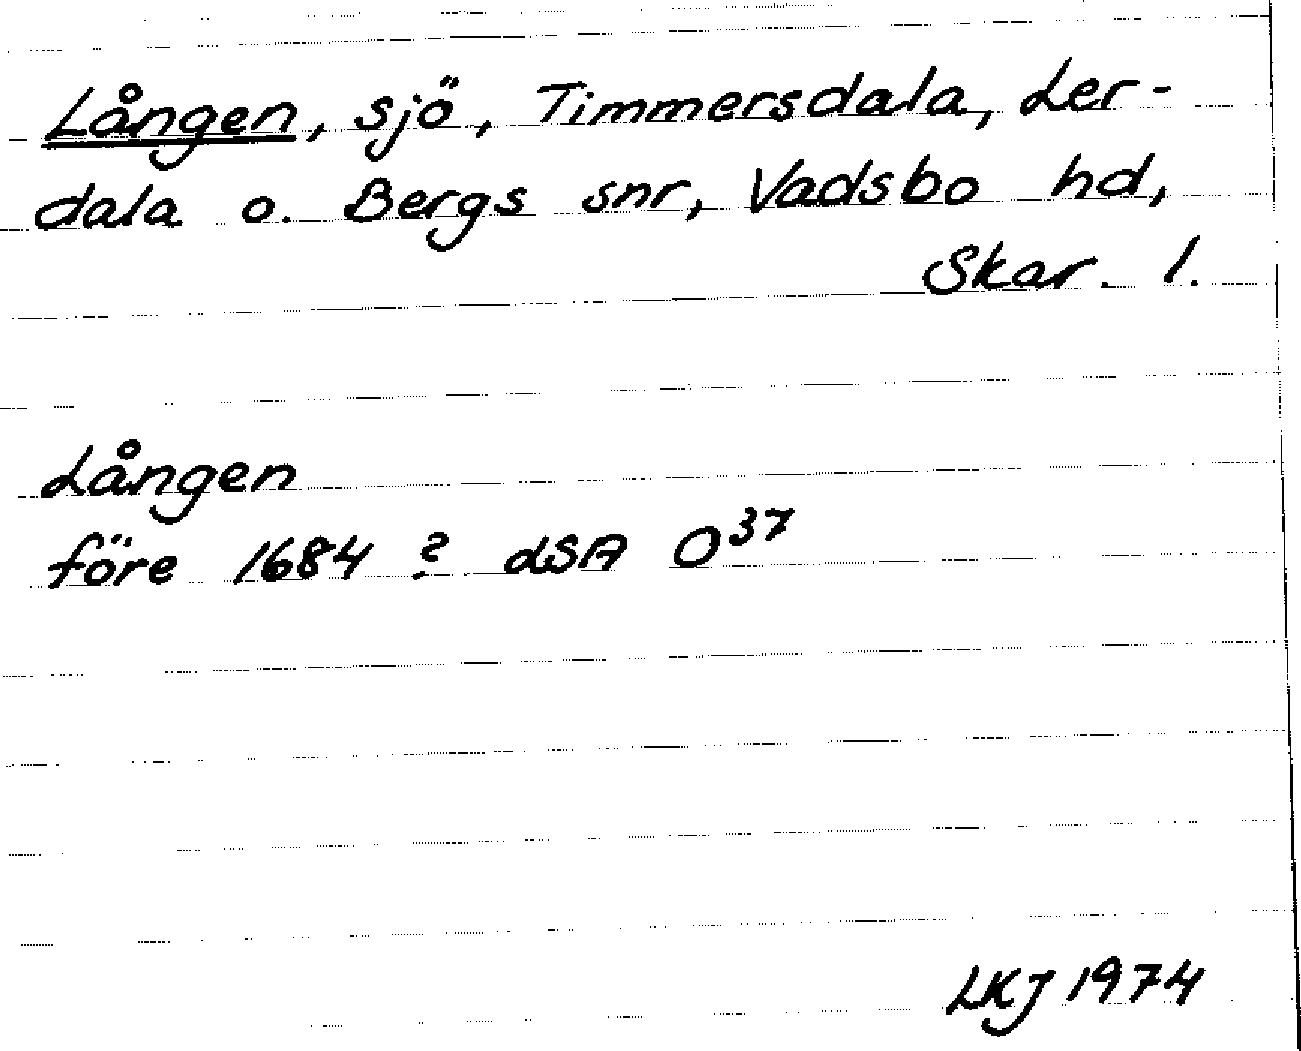 Lången, sjö, Timmersdala, Ler-
dala o. Bergs snr, Vadsbo hd,
Skar. l.
Lången
före 1684 ? dSA O³⁷
LKJ 1974